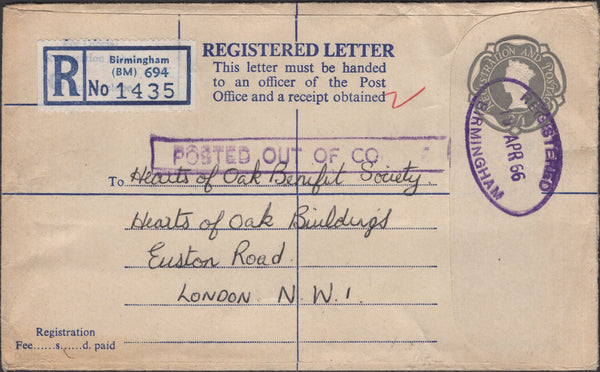 Birmingham
(BM) 694
R No 1435
REGISTERED LETTER
This letter must be handed
to an officer of the Post
Office and a receipt obtained
REGISTRATION AND POSTAGE
REGISTERED
APR 66
BIRMINGHAM
POSTED OUT OF CO
To Hearts of Oak Benefit Society
Hearts of Oak Buildings
Euston Road
LONDON N.W.1.
Registration
Fee......s......d. paid